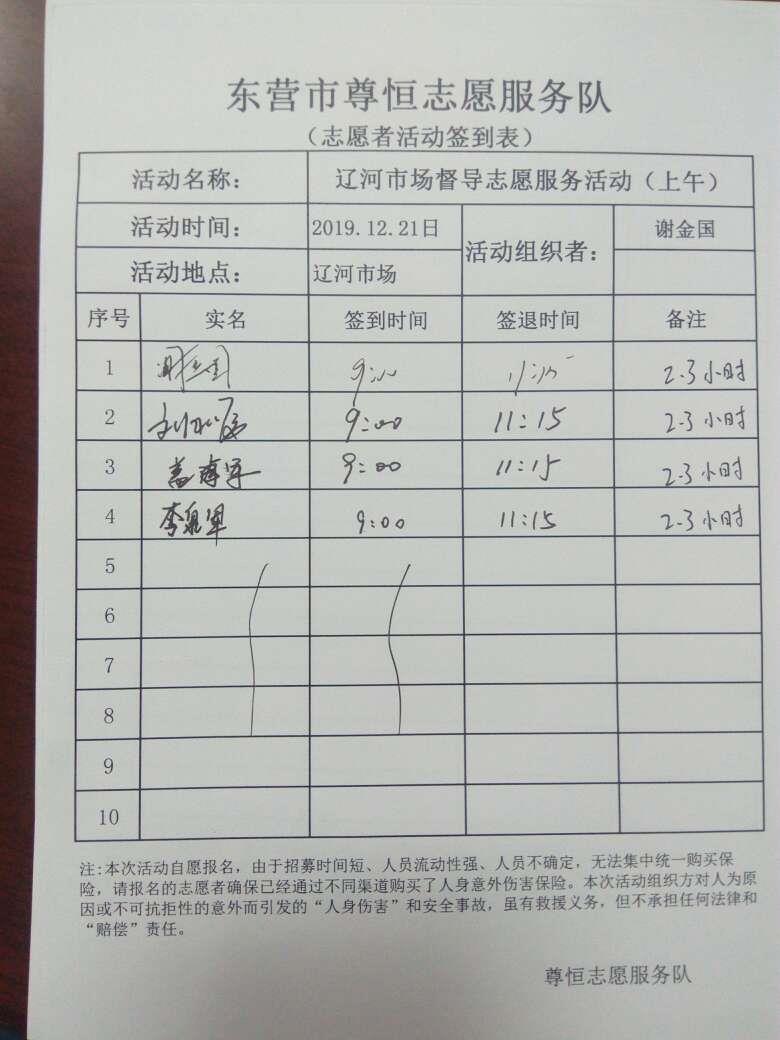 东营市尊恒志愿服务队
（志愿者活动签到表）
活动名称： 辽河市场督导志愿服务活动（上午）
活动时间： 2019.12.21日 活动组织者： 谢金国
活动地点： 辽河市场
序号 实名 签到时间 签退时间 备注
1 9:00 11:15 2.3小时
2 9:00 11:15 2.3小时
3 盖海军 9:00 11:15 2.3小时
4 李泉军 9:00 11:15 2.3小时
5
6
7
8
9
10
注:本次活动自愿报名，由于招募时间短、人员流动性强、人员不确定，无法集中统一购买保
险，请报名的志愿者确保已经通过不同渠道购买了人身意外伤害保险。本次活动组织方对人为原
因或不可抗拒性的意外而引发的“人身伤害”和安全事故，虽有救援义务，但不承担任何法律和
“赔偿”责任。
尊恒志愿服务队